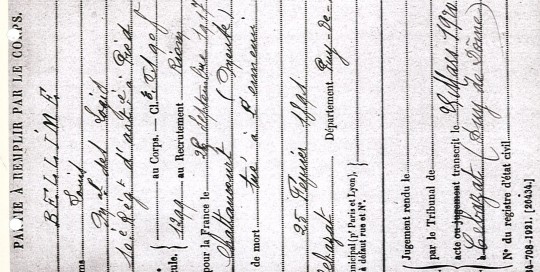 PARTIE À REMPLIR PAR LE CORPS.
BELLIME
Louis
ms
Mal des Logis
10è Régt d'artie à Pied
au Corps. — Cl
cule.
1299 au Recrutement Riom
pour la France le 28 septembre 1917
Chattancourt (Meuse)
de mort tué à l'ennemi
25 Février 1891
Cébazat Département Puy-de-
municipal (pr Paris et Lyon),
à défaut rue et N°.
Jugement rendu le
par le Tribunal de
acte ou jugement transcrit le 28 Mars 1920
Cébazat (Puy de Dôme)
N° du registre d'état civil
-708-1921. [26434.]